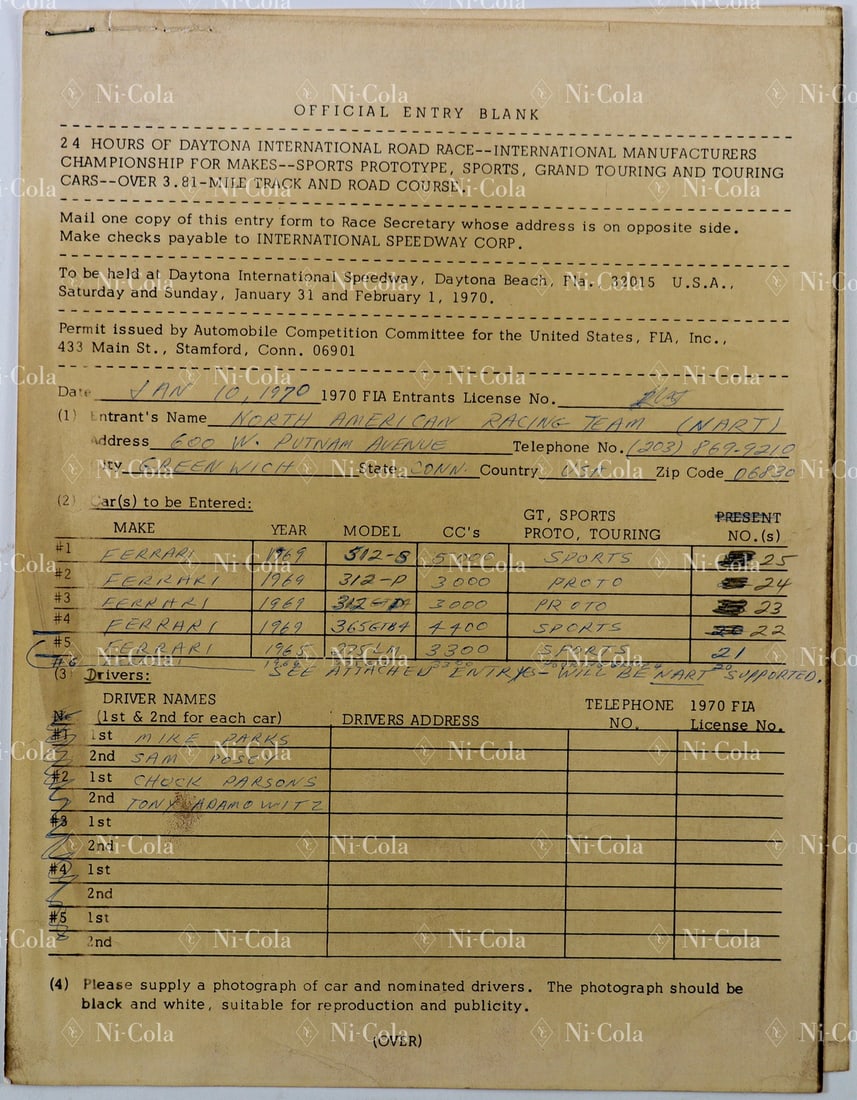 OFFICIAL ENTRY BLANK
24 HOURS OF DAYTONA INTERNATIONAL ROAD RACE--INTERNATIONAL MANUFACTURERS
CHAMPIONSHIP FOR MAKES--SPORTS PROTOTYPE, SPORTS, GRAND TOURING AND TOURING
CARS--OVER 3.81-MILE TRACK AND ROAD COURSE.
Mail one copy of this entry form to Race Secretary whose address is on opposite side.
Make checks payable to INTERNATIONAL SPEEDWAY CORP.
To be held at Daytona International Speedway, Daytona Beach, Fla., 32015 U.S.A.,
Saturday and Sunday, January 31 and February 1, 1970.
Permit issued by Automobile Competition Committee for the United States, FIA, Inc.,
433 Main St., Stamford, Conn. 06901
Date JAN 10, 1970 1970 FIA Entrants License No.
(1) Entrant's Name NORTH AMERICAN RACING TEAM (NART)
Address 600 W. PUTNAM AVENUE Telephone No. (203) 869-9210
ity GREENWICH State CONN. Country USA Zip Code 06830
(2) Car(s) to be Entered:
MAKE YEAR MODEL CC's GT, SPORTS PROTO, TOURING PRESENT NO.(s)
#1 FERRARI 1969 512-S 5000 SPORTS 25
#2 FERRARI 1969 312-P 3000 PROTO 24
#3 FERRARI 1969 3000 PROTO 23
#4 FERRARI 1969 365GTB4 4400 SPORTS 22
#5 FERRARI 1965 275LM 3300 SPORTS 21
#6 SEE ATTACHED ENTRY - WILL BE NART SUPPORTED.
(3) Drivers:
DRIVER NAMES
(1st & 2nd for each car) DRIVERS ADDRESS TELEPHONE NO. 1970 FIA License No.
#1 1st MIKE PARKS
2nd SAM POSEY
#2 1st CHUCK PARSONS
2nd TONY ADAMOWITZ
#3 1st
2nd
#4 1st
2nd
#5 1st
2nd
(4) Please supply a photograph of car and nominated drivers. The photograph should be
black and white, suitable for reproduction and publicity.
(OVER)
Ni-Cola